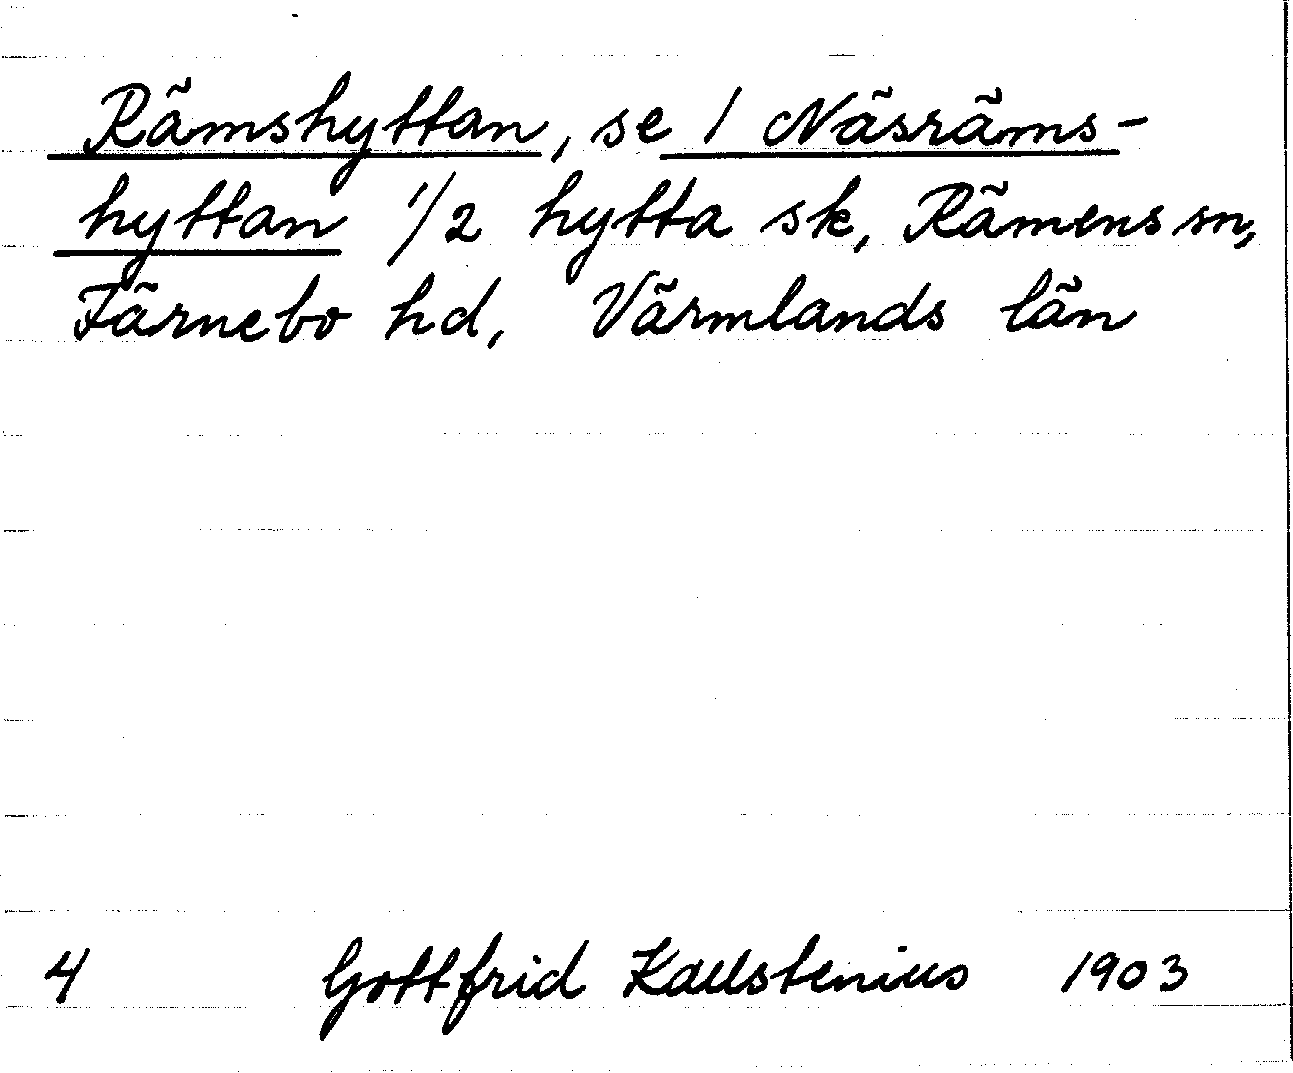 Rämshyttan, se 1 Näsräms-
hyttan 1/2 hytta sk, Rämens sn,
Färnebo hd, Värmlands län
4 Gottfrid Kallstenius 1903